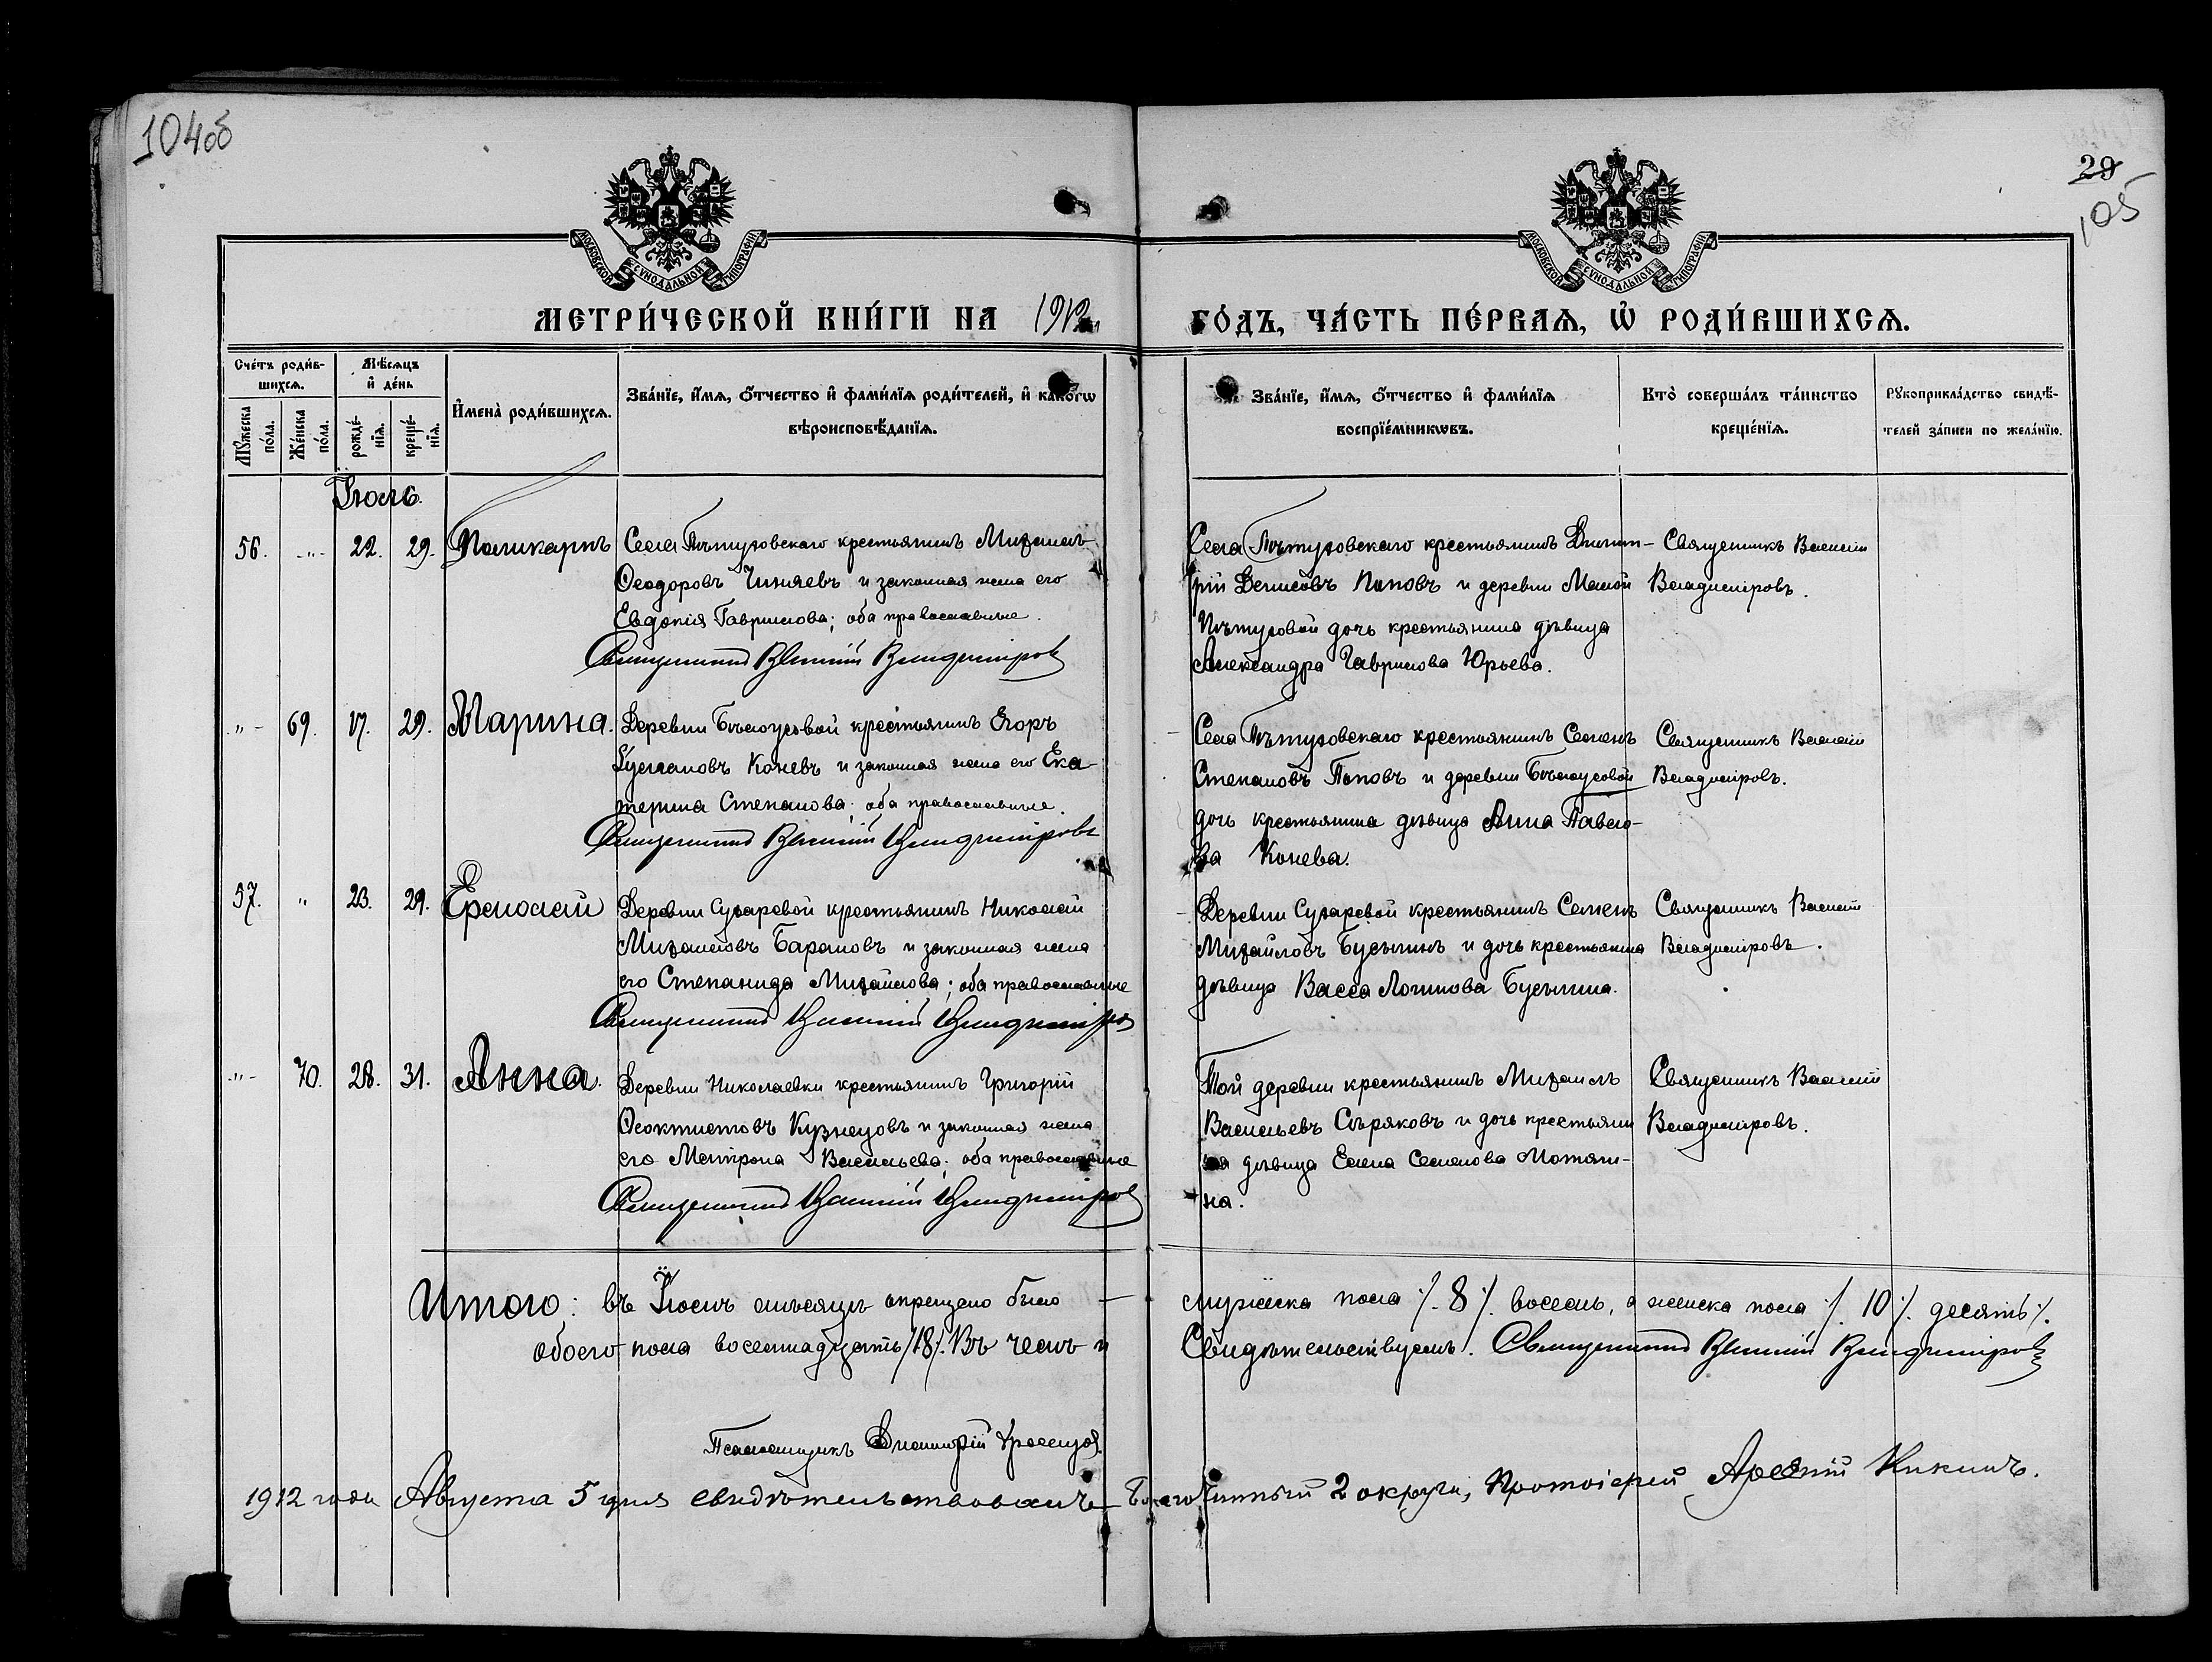 104об
29
105
МОСКОВСКОЙ СѴНОДАЛЬНОЙ ТИПОГРАФІИ
МОСКОВСКОЙ СѴНОДАЛЬНОЙ ТИПОГРАФІИ
МЕТРИ́ЧЕСКОЙ КНИ́ГИ НА 1912
ГО́ДЪ, ЧА́СТЬ ПЕ́РВАЯ, Ѡ РОДИ́ВШИХСЯ.
Сче́тъ роди́в-
шихся.
Мꙋ́жеска по́ла.
Же́нска по́ла.
Мѣ́сяцъ
и҆ де́нь
рожде́-
нїя.
креще́-
нїя.
И҆мена̀ роди́вшихся.
Зва́нїе, и҆́мя, ѻ҆́тчество и҆ фами́лїя роди́телей, и҆ како́гѡ
вѣроисповѣ́данїя.
Зва́нїе, и҆́мя, ѻ҆́тчество и҆ фами́лїя
воспрїе́мникѡвъ.
Кто̀ соверша́лъ та́инство
креще́нїя.
Рꙋкоприкла́дство свидѣ́-
телей за́писи по жела́нїю.
Іюль.
56. -"- 22. 29. Поликарпъ
Села Пѣтуховскаго крестьянинъ Михаилъ
Ѳеодоровъ Чиняевъ и законная жена его
Евдокія Гаврилова; оба православные.
Священникъ Василій Владиміровъ
Села Пѣтуховскаго крестьянинъ Димит-
рій Денисовъ Поповъ и деревни Малой
Пѣтуховой дочь крестьянина дѣвица
Александра Гаврилова Юрьева.
Священникъ Василій
Владиміровъ.
-"- 69. 17. 29. Марина.
Деревни Бѣлоусовой крестьянинъ Егоръ
Коневъ и законная жена его Ека-
терина Степанова; оба православные.
Священникъ Василій Владиміровъ
Села Пѣтуховскаго крестьянинъ Семенъ
Степановъ Поповъ и деревни Бѣлоусовой
дочь крестьянина дѣвица Анна Павло-
ва Конева.
Священникъ Василій
Владиміровъ.
57. " 23. 29. Ермолай
Деревни Сухаревой крестьянинъ Николай
Михаиловъ Барановъ и законная жена
его Степанида Михайлова; оба православные
Священникъ Василій Владиміровъ
Деревни Сухаревой крестьянинъ Семенъ
Михайловъ Бусыгинъ и дочь крестьянина
дѣвица Васса Логинова Бусыгина.
Священникъ Василій
Владиміровъ.
-"- 70. 28. 31. Анна.
Деревни Николаевки крестьянинъ Григорій
Ѳеоктистовъ Кузнецовъ и законная жена
его Матрона Васильева; оба православные
Священникъ Василій Владиміровъ
Той деревни крестьянинъ Михаилъ
Васильевъ Сѣряковъ и дочь крестьяни
на дѣвица Елена Семенова Мотяги-
на.
Священникъ Василій
Владиміровъ.
Итого: въ Іюлѣ мѣсяцѣ окрещено было —
мужеска пола ·/. 8 ·/. восемь, а женска пола ·/. 10 ·/. десять ·/.
обоего пола восемнадцать /18/. Въ чемъ и
Свидѣтельствуемъ. Священникъ Василій Владиміровъ
Псаломщикъ Димитрій
1912 года Августа 5 дня свидѣтельствовалъ — Благочинный 2 округа, Протоіерей Арсеній Кикинъ.